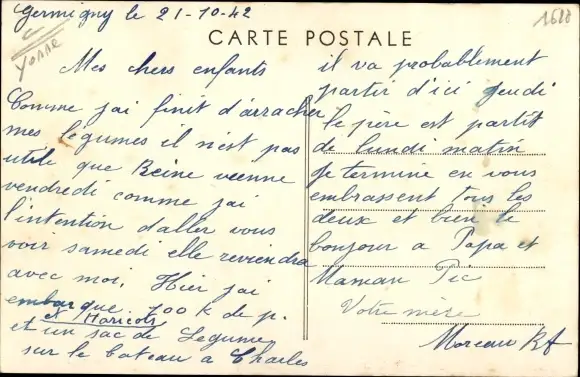 Germigny le 21-10-42
1588
Yonne
CARTE POSTALE
Mes chers enfants
Comme jai finit d'arracher
mes légumes il n'est pas
utile que Reine vienne
vendredi comme jai
l'intention d'aller vous
voir samedi elle reviendra
avec moi. Hier jai
embarque 100 K de p.
et Haricots
et un sac de Legume
sur le bateau a Charles
il va probablement
partir d'ici Jeudi
le père est partit
de lundi matin
Je termine en vous
embrassent tous les
deux et bien le
bonjour a Papa et
Maman Pic
Votre mère
Moreau